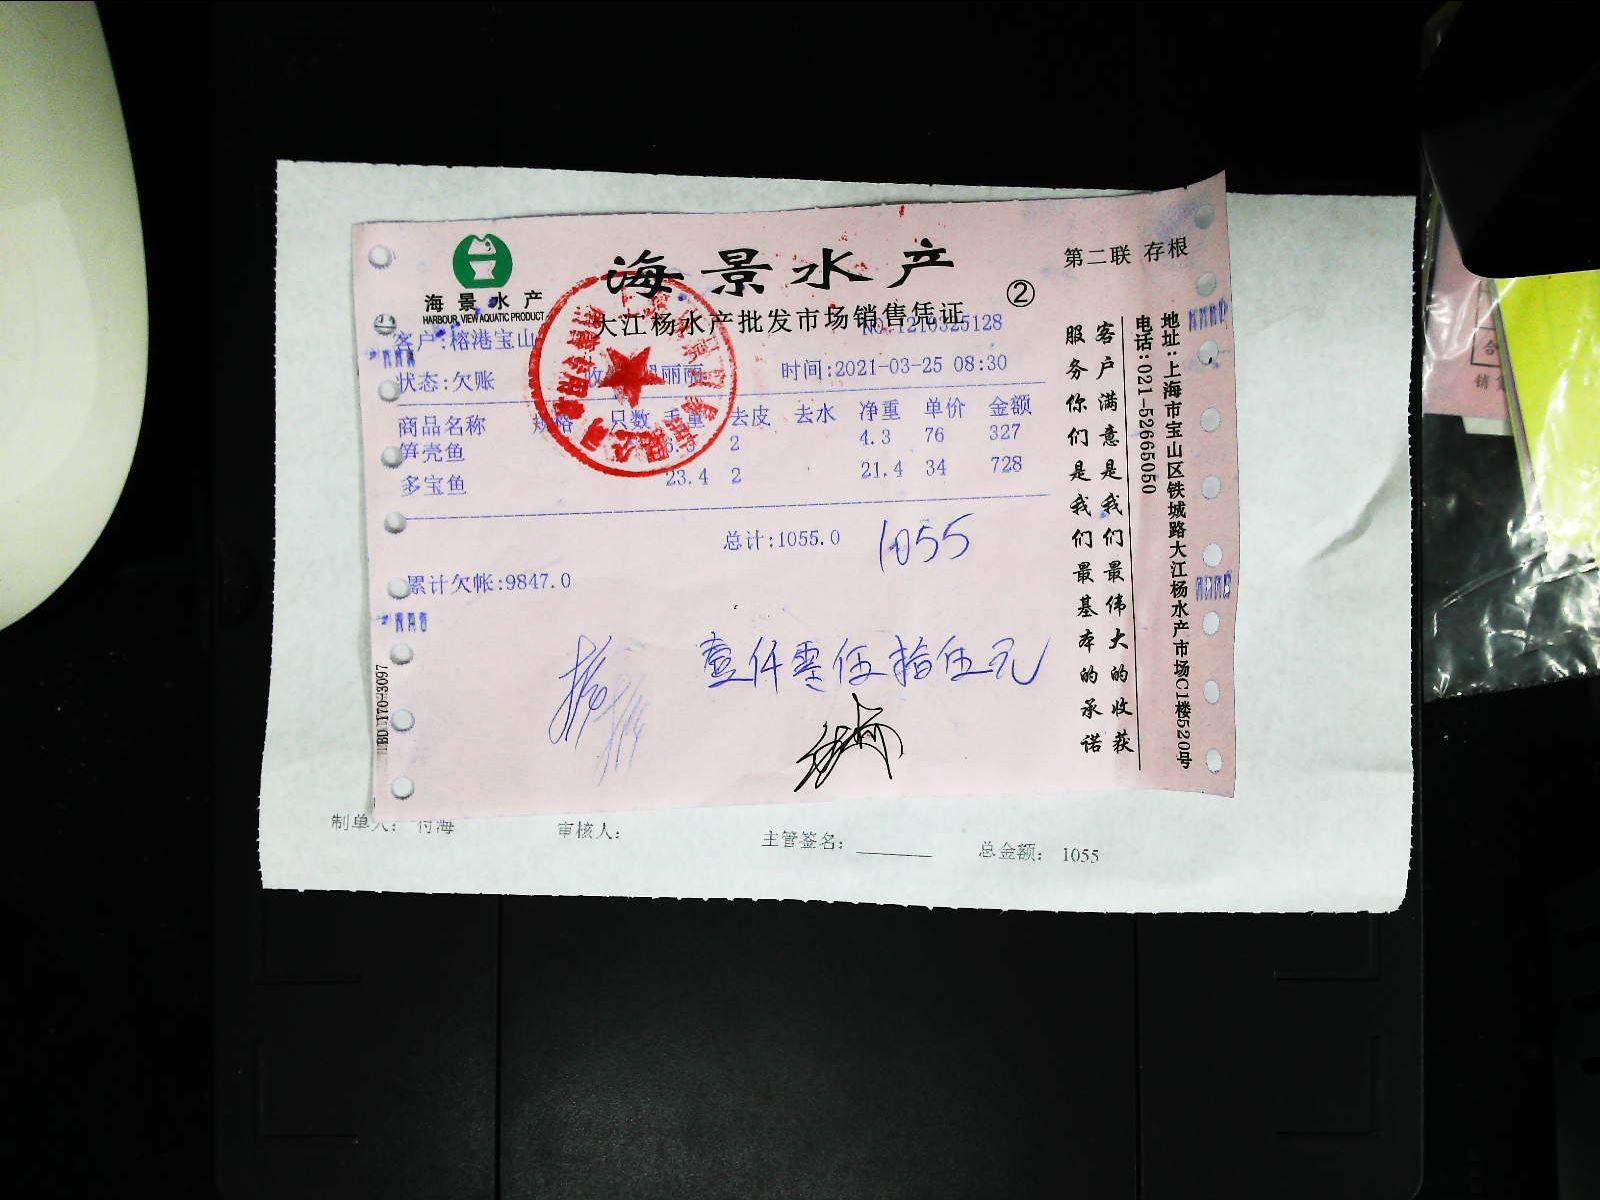 海景水产
HARBOUR VIEW AQUATIC PRODUCT
海景水产
大江杨水产批发市场销售凭证
②
第二联 存根
NO:1210325128
客户:榕港宝山
状态:欠账
丽丽
时间:2021-03-25 08:30
商品名称 规格 只数 毛重 去皮 去水 净重 单价 金额
笋壳鱼 6.3 2 4.3 76 327
多宝鱼 23.4 2 21.4 34 728
总计:1055.0 1055
累计欠帐:9847.0
壹仟零伍拾伍元
客户满意是我们最伟大的收获
服务你们是我们最基本的承诺
地址:上海市宝山区铁城路大江杨水产市场C1楼520号
电话:021-52665050
制单人: 付海
审核人:
主管签名:
总金额: 1055